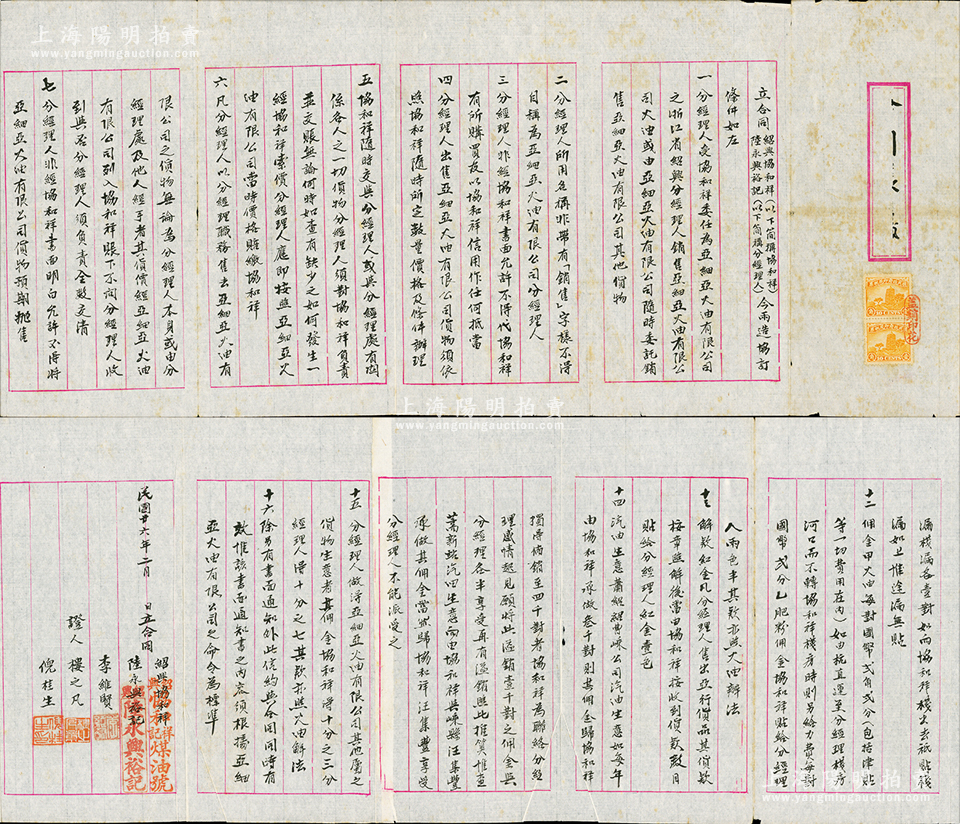 上海陽明拍賣
www.yangmingauction.com
立合同紹興協和祥(以下簡稱協和祥)陸永興裕記(以下簡稱分經理人)今兩造協訂
條件如左
一分經理人受協和祥委任為亞細亞火油有限公司
之浙江省紹興分經理人銷售亞細亞火油有限公
司火油或由亞細亞火油有限公司隨時委託銷
售亞細亞火油有限公司其他貨物
二分經理人所用名稱非帶有「銷售」字樣不得
自稱為亞細亞火油有限公司分經理人
三分經理人非經協和祥書面允許不得代協和祥
有所購買及以協和祥信用作任何抵當
四分經理人出售亞細亞火油有限公司貨物須依
照協和祥隨時所定數量價格及條件辦理
五協和祥隨時交與分經理人或與分經理處有關
係各人之一切貨物分經理人須對協和祥負責
並交賬無論何時如查有缺少之如何發生一
經協和祥索價分經理人應即按照亞細亞火
油有限公司當時價格賠繳協和祥
六凡分經理人以分經理職務售去亞細亞火油有
限公司之貨物無論為分經理人本身或由分
經理處及他人經手者其貨價經亞細亞火油
有限公司列入協和祥賬下不論分經理人收
到與否分經理人須負責全數交清
七分經理人非經協和祥書面明白允許不得將
亞細亞火油有限公司貨物預期拋售
上海陽明拍賣
www.yangmingauction.com
漏棧漏各壹對如向協和祥棧出去祇貼棧
漏如上惟途漏無貼
十二佣金甲火油每對國幣弍角弍分(包括津貼
等一切費用在內)如由杭直運至分經理棧房
河口而不轉協和祥棧房時則另給力費每對
國幣弍分乙肥粉佣金協和祥貼給分經理
人兩包半其款亦照火油辦法
十三解款扣金凡分經理人售出亞行貨品其貨款
按章照解後當由協和祥接收到貨款數目
貼給分經理人扣金壹包
十四汽油生意蕭紹曹嵊公司汽油生意如每年
由協和祥承做叁千對則其佣金歸協和祥
獨得倘銷至四千對者協和祥為聯絡分經
理感情起見願將此溢銷壹千對之佣金與
分經理各半享受再有溢銷照此推算惟查
蒿新路汽油生意向由協和祥與嵊縣汪集豐
承做其佣金當然歸協和祥汪集豐享受
分經理人不能派受之
十五分經理人做得亞細亞火油有限公司其他處之
貨物生意者其佣金協和祥得十分之三分
經理人得十分之七其款亦照火油解法
十六除另有書面通知外此信約與合同同時有
效惟該書面通知書之內容須根據亞細
亞火油有限公司之命令為標準
民國廿六年二月　日立合同
紹興協和祥
陸永興裕記
李維賢
證人樓之凡
倪桂生
祥煤油號
永興裕記